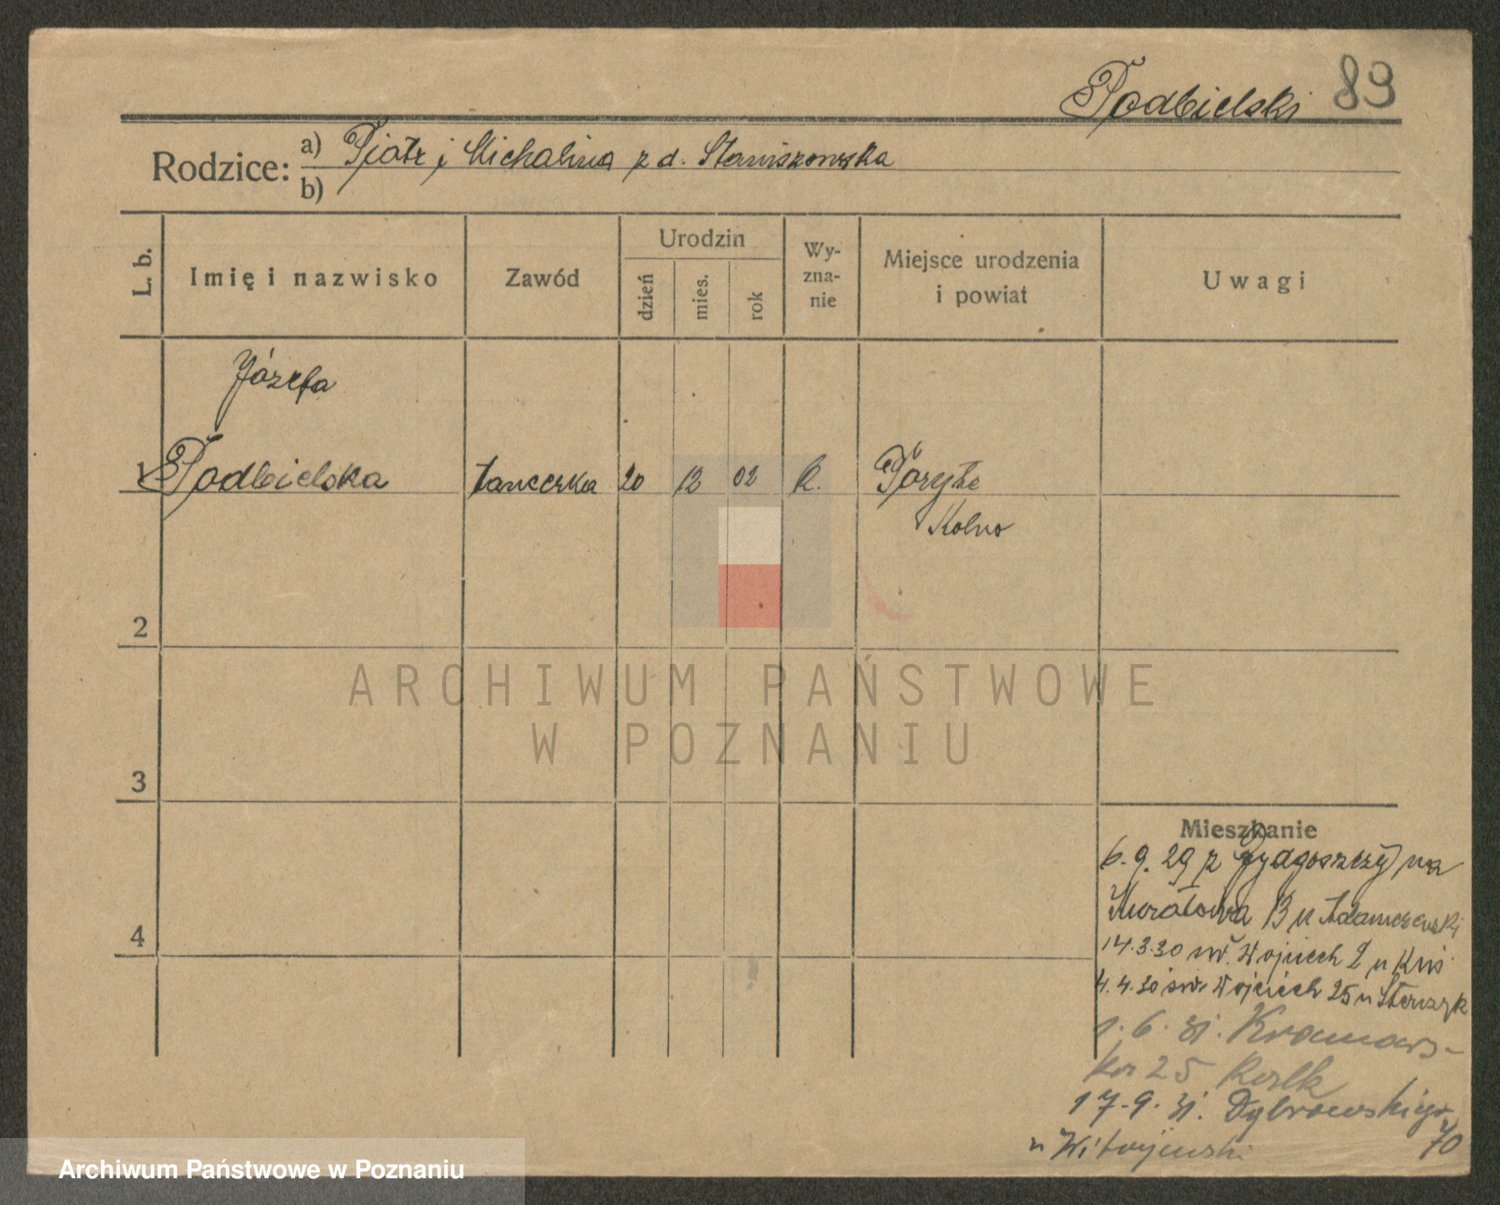 Podbielski 83
Rodzice: a) Piotr i Michalina z d. Staniszewska
b)
L. b.
Imię i nazwisko
Zawód
Urodzin
dzień
mies.
rok
Wy-
zna-
nie
Miejsce urodzenia
i powiat
Uwagi
Józefa
1 Podbielska tancerka 20 12 02 R. Poryte
Kolno
2
3
4
ARCHIWUM PAŃSTWOWE
W POZNANIU
Mieszkanie
6.9.29 z Bydgoszczy na
13 u Adamczewski
14.3.30 św. Wojciech 2 u
4.4.30 św. Wojciech 25 u
1.6.31. Kramars-
ka 25
17.9.31. Dąbrowskiego
70
u
Archiwum Państwowe w Poznaniu